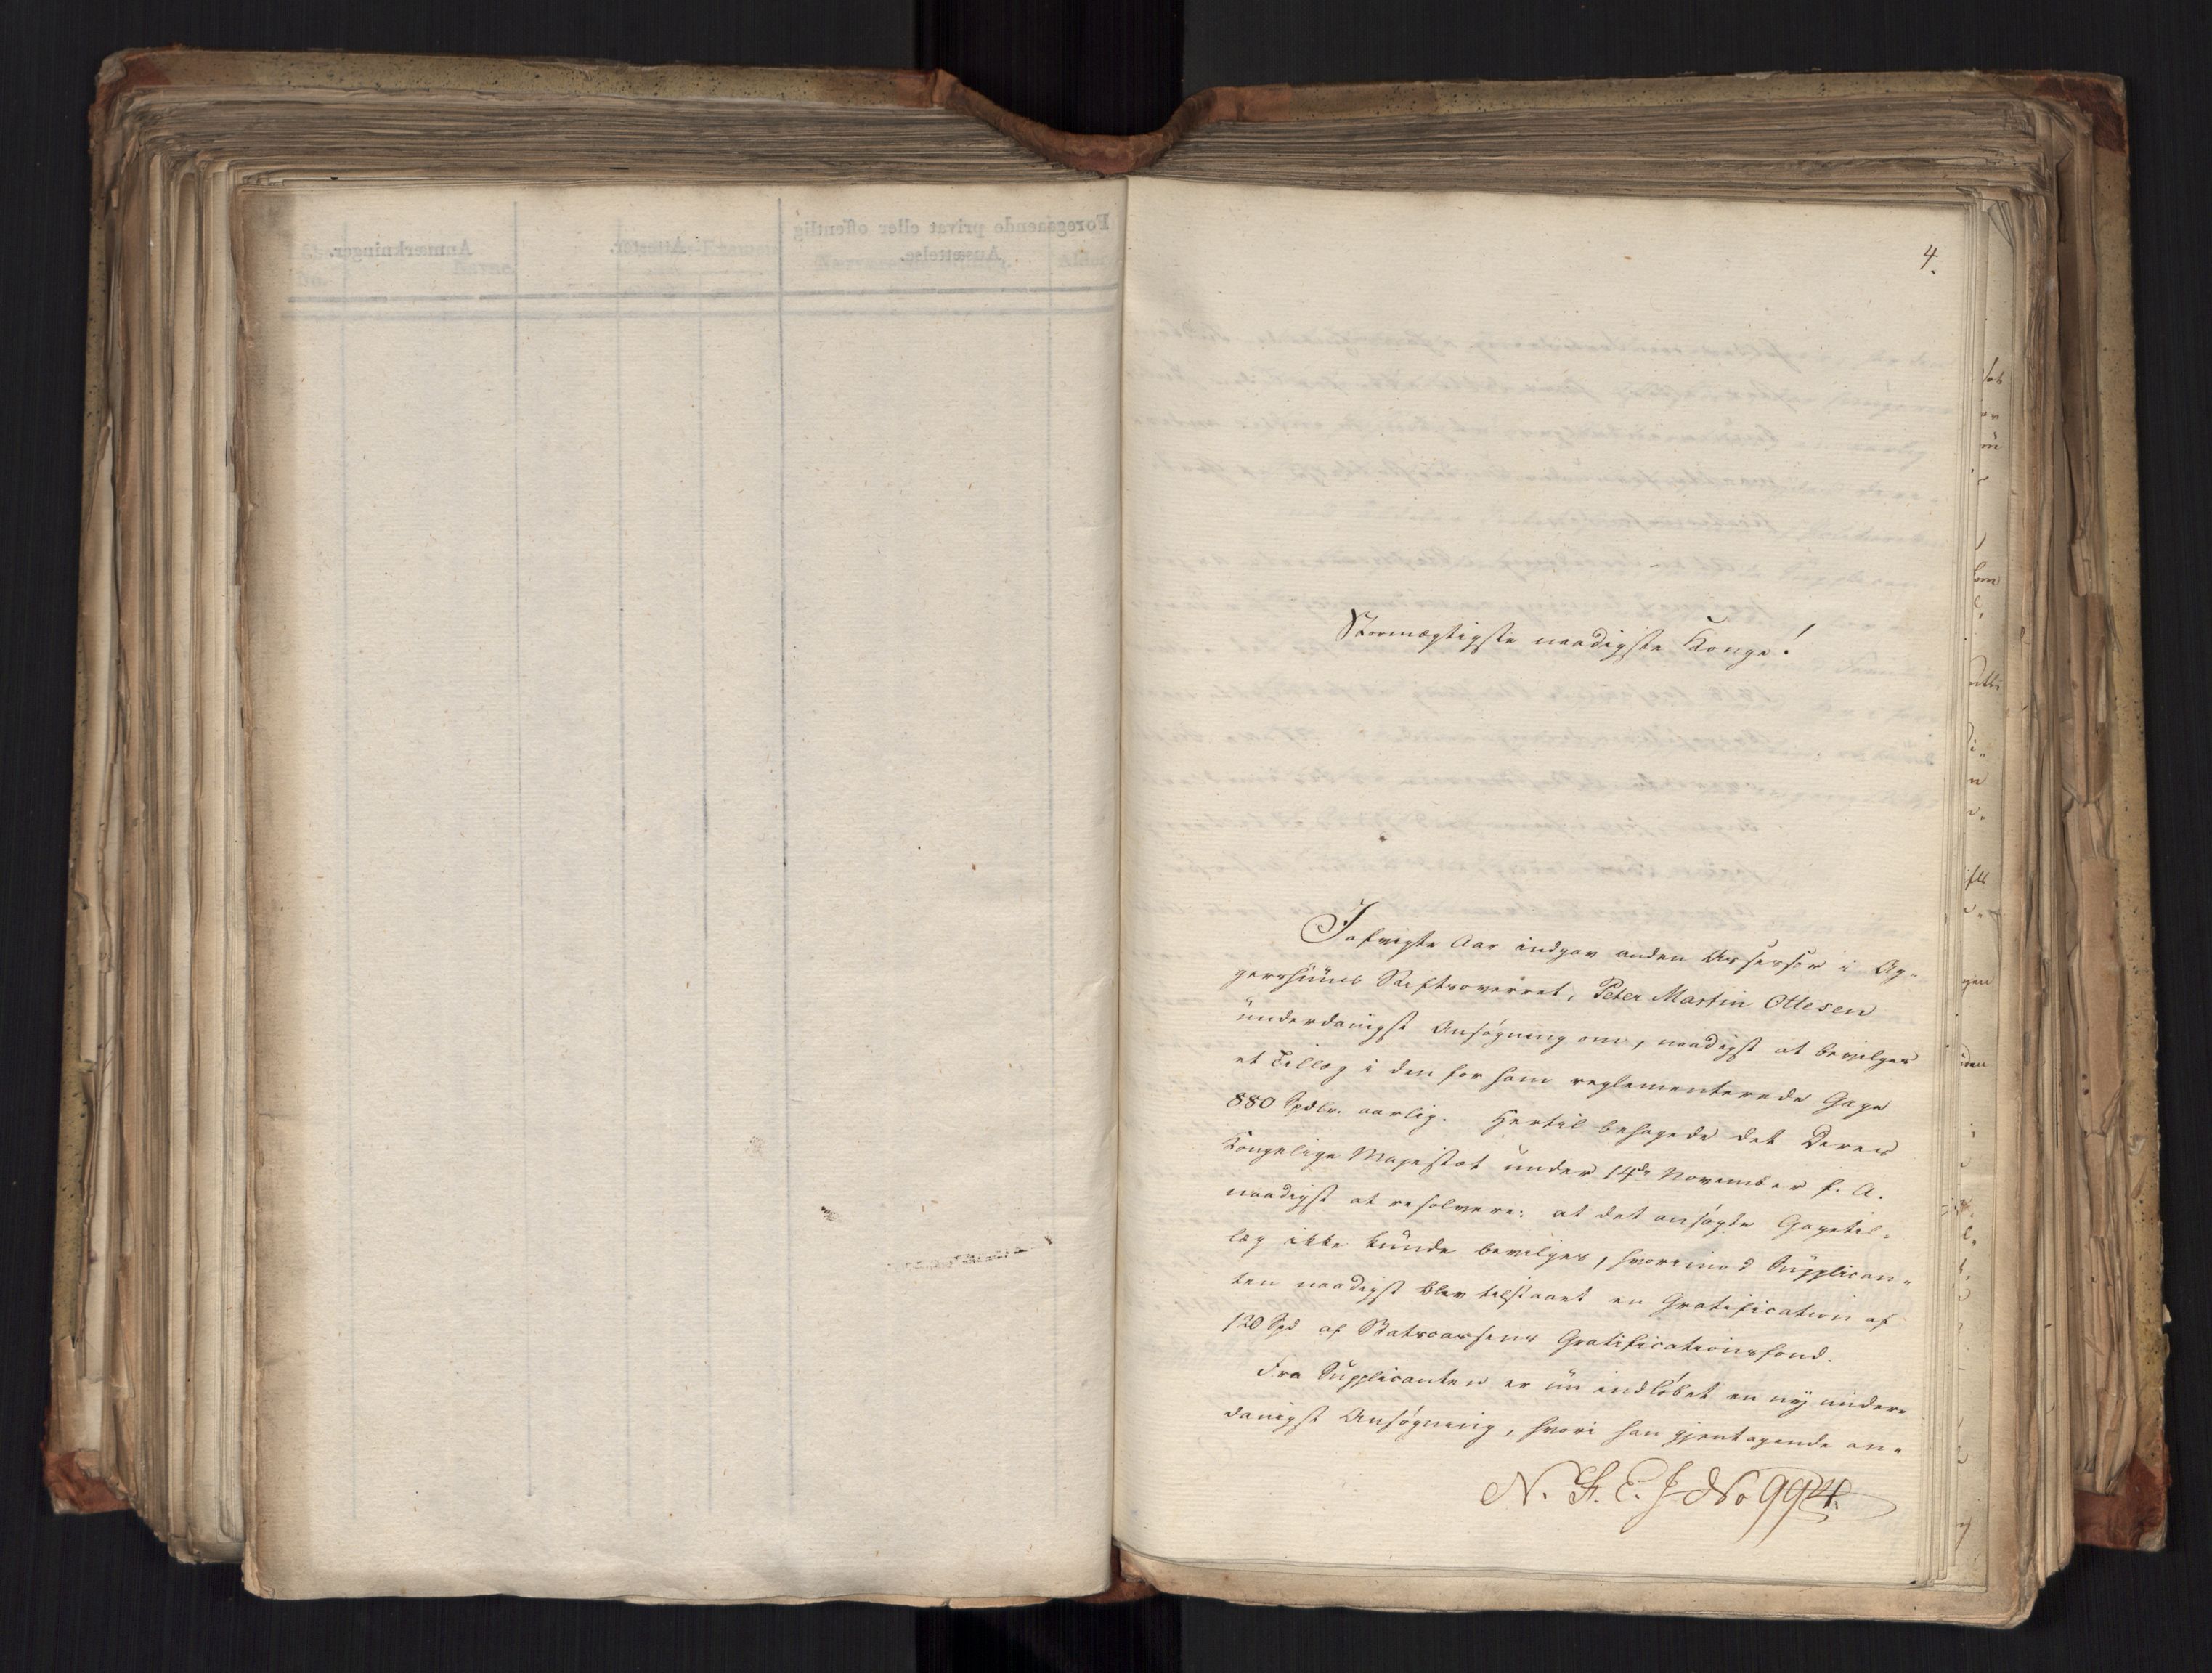 4.
Stormægtigste naadigste Konge!
I afvigte Aar indgav anden Assessor i Ag-
gershuus Stiftsoverret, Peter Martin Ottesen
underdanigst Ansøgning om, naadigst at bevilges
et Tillæg i den for ham reglementerede Gage
880 Spdlr. aarlig. Hertil behagede det Deres
Kongelige Majestæt under 14de November f. A.
naadigst at resolvere: at det ansøgte Gagetil-
læg ikke kunde bevilges, hvorimod Supplican-
ten naadigst blev tilstaaet en Gratification af
120 Spd af Statscassens Gratificationsfond.
Fra Supplicanten er nu indløbet en ny under-
danigst Ansøgning, hvori han gjentagende an-
N. F. E. J No 994.
Foregaaende privat eller offentlig
Ansættelse.
Attester.
Anmærkninger.